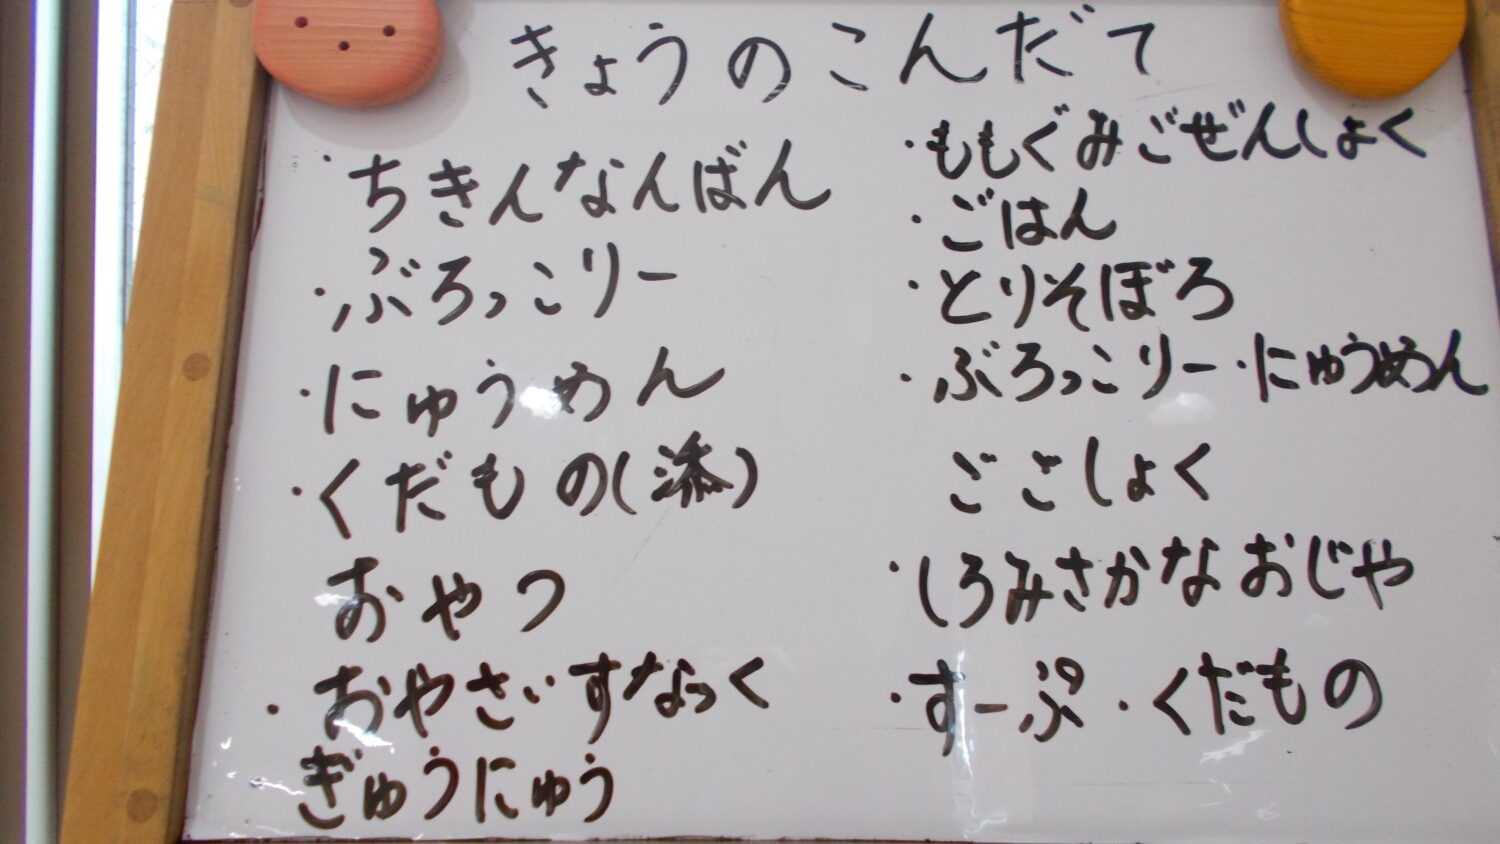 きょうのこんだて
・ちきんなんばん
・ぶろっこりー
・にゅうめん
・くだもの(添)
おやつ
・おやさいすなっく
ぎゅうにゅう
・ももぐみごぜんしょく
・ごはん
・とりそぼろ
・ぶろっこりー・にゅうめん
ごごしょく
・しろみさかなおじや
・すーぷ・くだもの